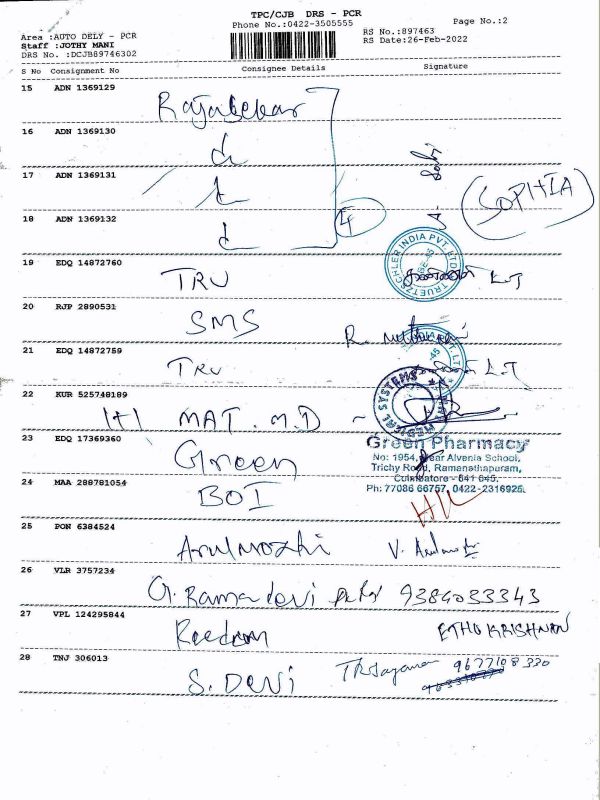 TPC/CJB DRS - PCR
Phone No.:0422-3505555
Page No.:2
Area :AUTO DELY - PCR
RS No.:897463
Staff :JOTHY MANI
RS Date:26-Feb-2022
DRS No. :DCJB89746302
S No Consignment No Consignee Details Signature
15 ADN 1369129
16 ADN 1369130
17 ADN 1369131
(SOPHIA)
18 ADN 1369132
4
TRUETZSCHLER INDIA PVT. LTD.
19 EDQ 14872760 TRU
20 RJP 2890531 SMS
21 EDQ 14872759 TRU
22 KUR 525748189 1+1 MAT. M.D
MEDICAL SYSTEMS
23 EDQ 17369360 Green
Green Pharmacy
No: 1954, Near Alvenia School,
Trichy Road, Ramanathapuram,
Coimbatore - 641 045.
Ph: 77086 66757, 0422-2316925.
24 MAA 288781054 BOI
25 PON 6384524 Arulmozhi
26 VLR 3757234 G. Ramadevi 9384033343
27 VPL 124295844
28 TNJ 306013 S. Devi 9677108330